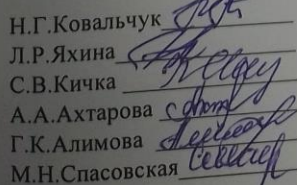 Н.Г.Ковальчук
Л.Р.Яхина
С.В.Кичка
А.А.Ахтарова
Г.К.Алимова
М.Н.Спасовская